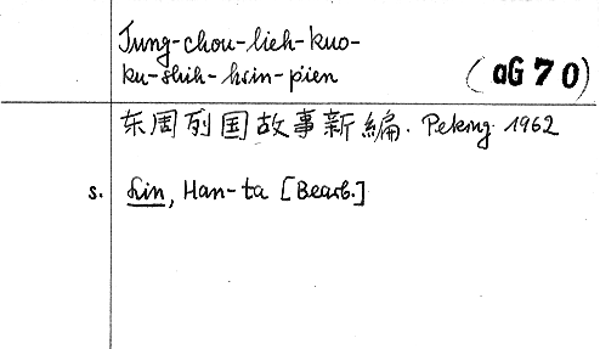 Tung-chou-lieh-kuo-
ku-shih-hsin-pien
(aG 70)
东周列国故事新編. Peking 1962
s. Lin, Han-ta [Bearb.]